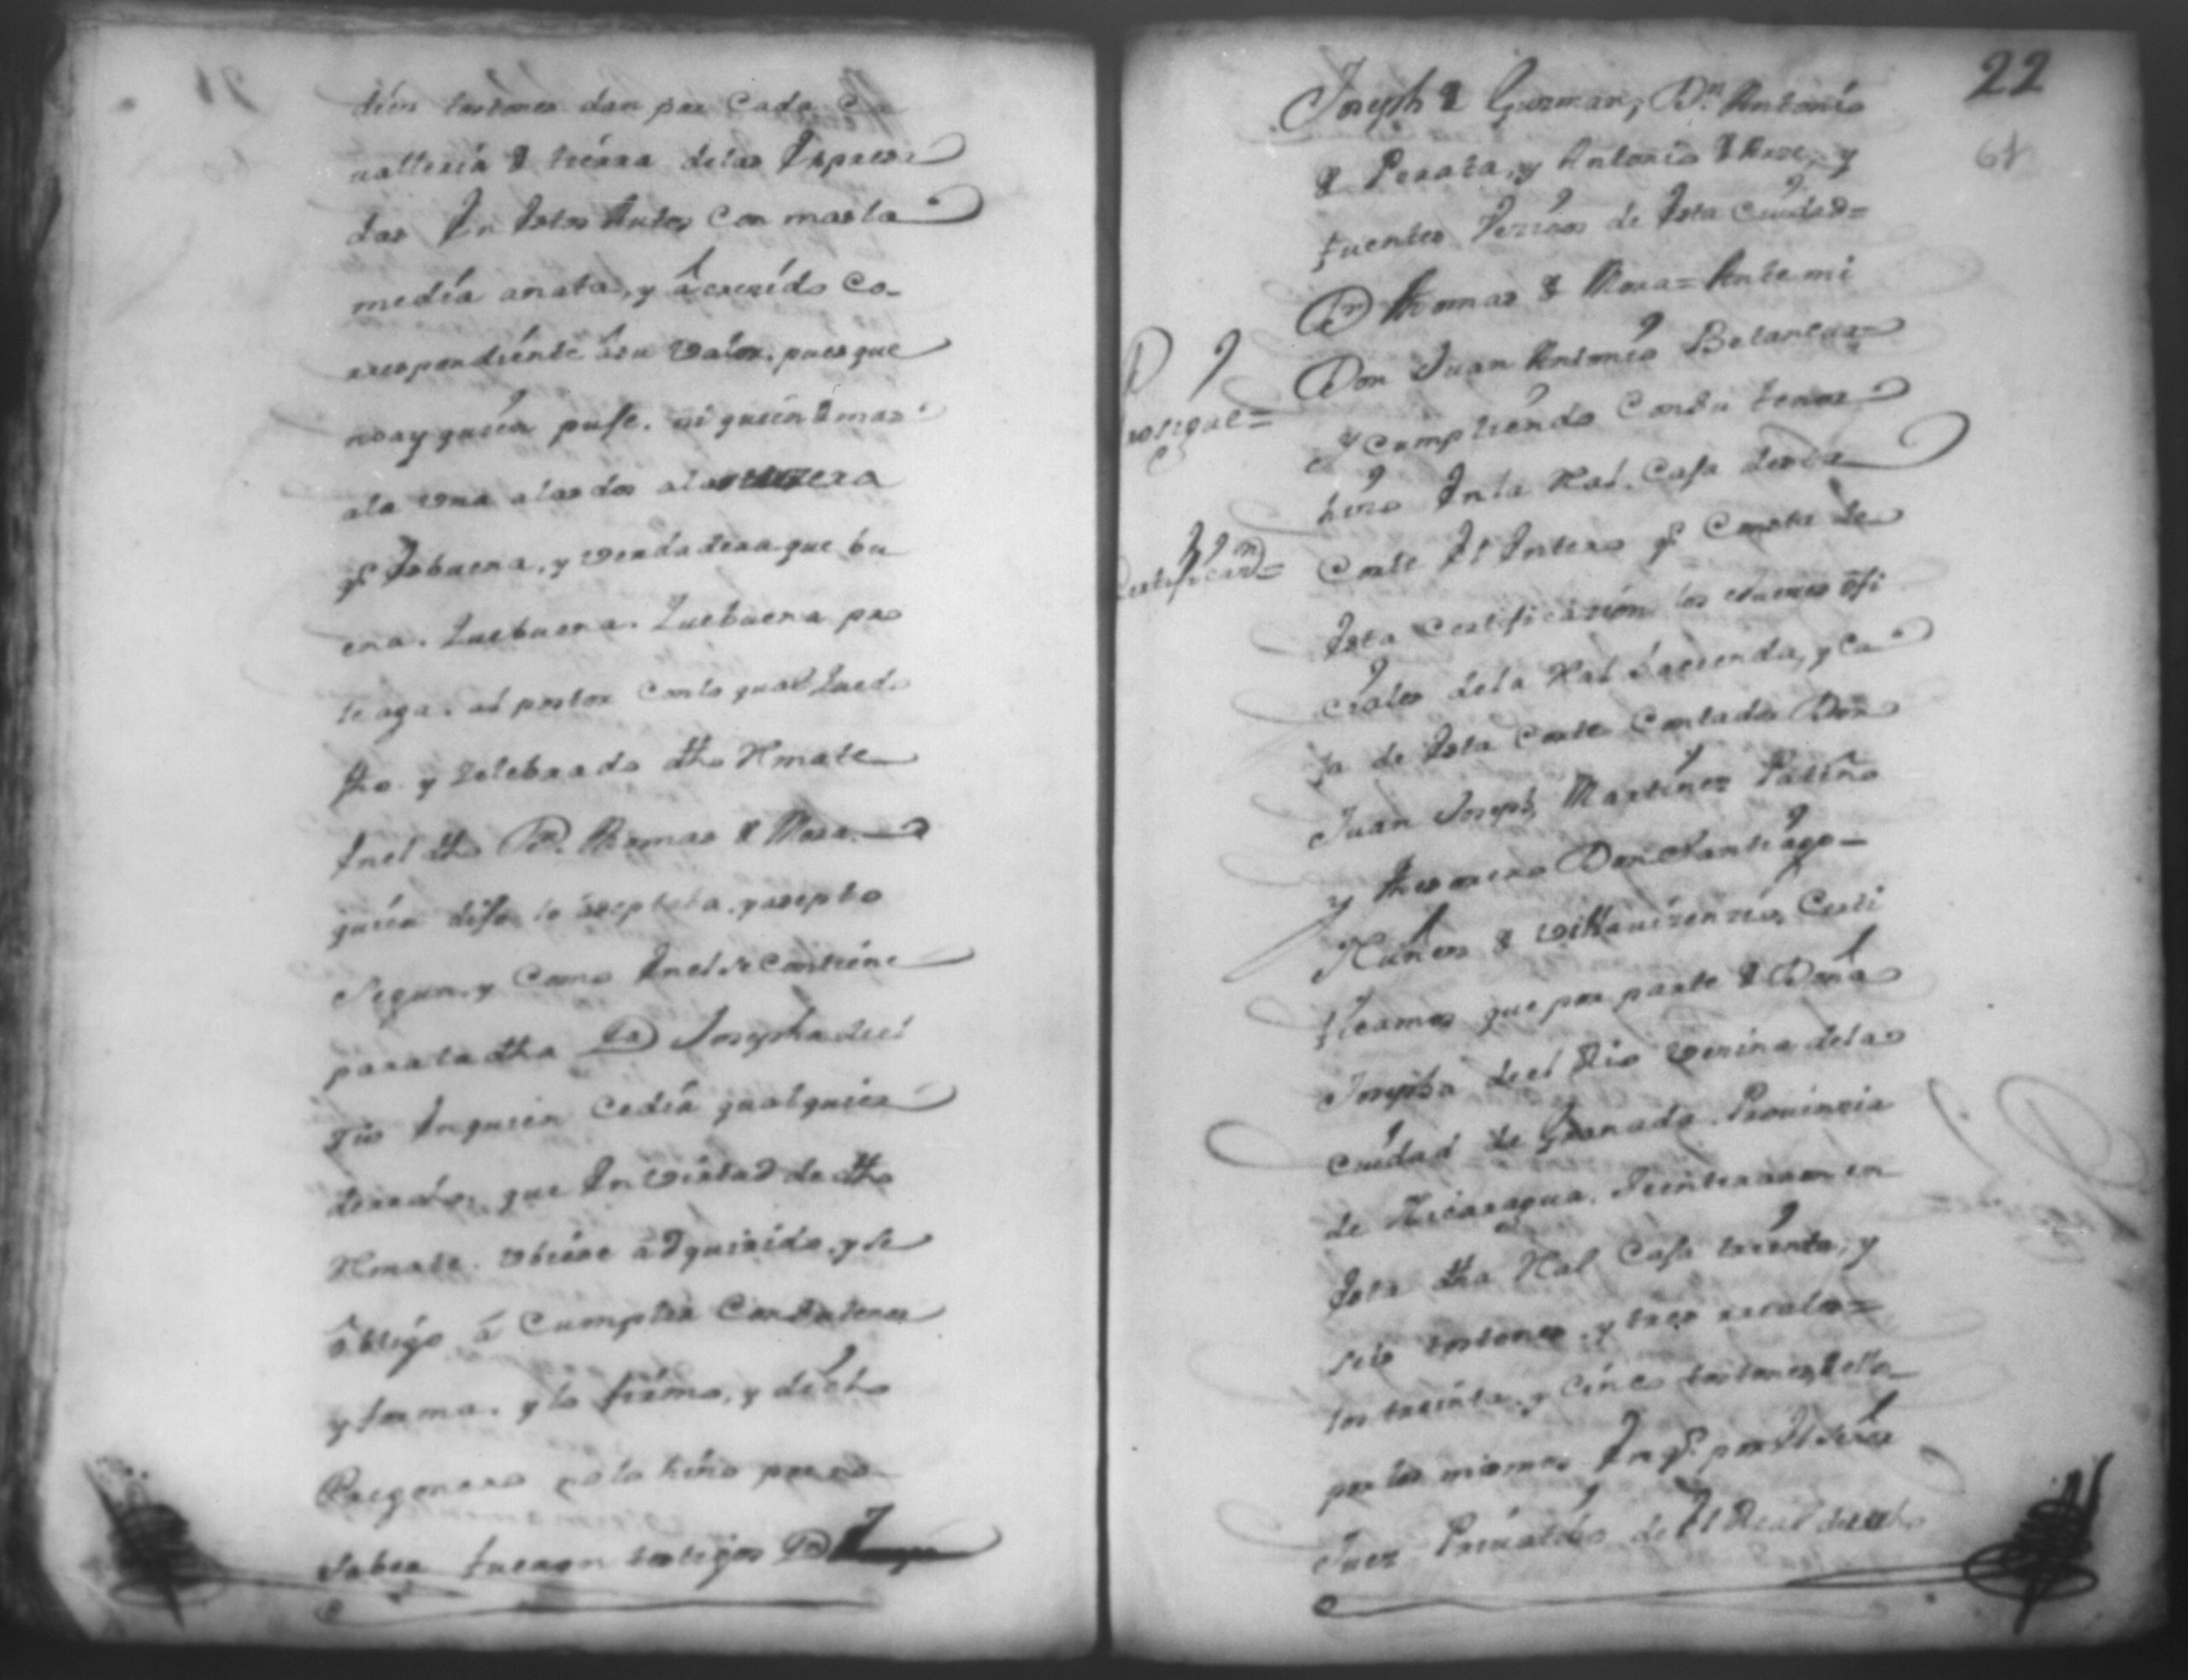 dien tostones dan por Cada Ca
ualleria de tierra delas Expresa
das En Estos Autos Con mas la
media anata, y â crecido Co-
rrespondiente âsu Valor, pues que
no ay quien puje. ni quien de mas
ala Una alas dos ala terzera
qe Es buena, y Verdadera que bu
ena. Que buena. Que buena pro
le aga. al postor Conlo qual quedo
fho. y Zelebrado dho Rmate
Enel dho Dn. Thomas de Mora.
quien dijo lo âzeptaba, y azepto
Segun, y Como Enel se Contiene
para la dha Da Josepha deel
Rio Enquien Cedia qualquier
derecho, que En Virtud de dho
Rmate. Vbiese âdquirido, y se
ôbligo â Cumplir Con Su tenor
y forma. y lo firmo, y dicho
Pregonero no lo hizo por no
Saber fueron testigos Dn
22
61
Joseph de Guzman, Dn. Antonio
de Peraza, y Antonio de Arze, y
fuentes Vezinos de Esta Ciudad=
Dn Thomas de Mora= Ante mi
Don Juan Antonio Betancur=
Prosigue=
y Cumpliendo Con Su tenor
hizo En la Real Caja de esta
Certificazn=
Corte El Entero qe Consta de
Esta Certificazion los Jueces ofi
ciales dela Real hacienda, y Ca
ja de Esta Corte Contador Don
Juan Joseph Martinez Patiño
y thesorero Don Santiago
Nuñes de Villauizenzio, Certi
ficamos que por parte de Doña
Josepha deel Rio Vezina dela
Ciudad de Granada. Prouinzia
de Nicaragua. Se enteraron en
Esta dha Real Caja treinta, y
seis tostones, y tres reales=
los treinta, y Cinco tostones dello
por los mismos En qe por El Señor
Juez Priuatibo de El Real derecho